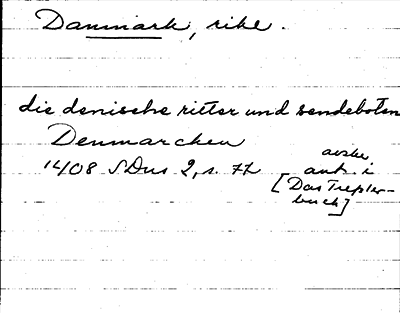 Danmark, rike.
die denische ritter und sendeboten
Denmarchen
1408 SDns 2, s. 77
avskr.
ant. i
[Das Tressler-
buch]